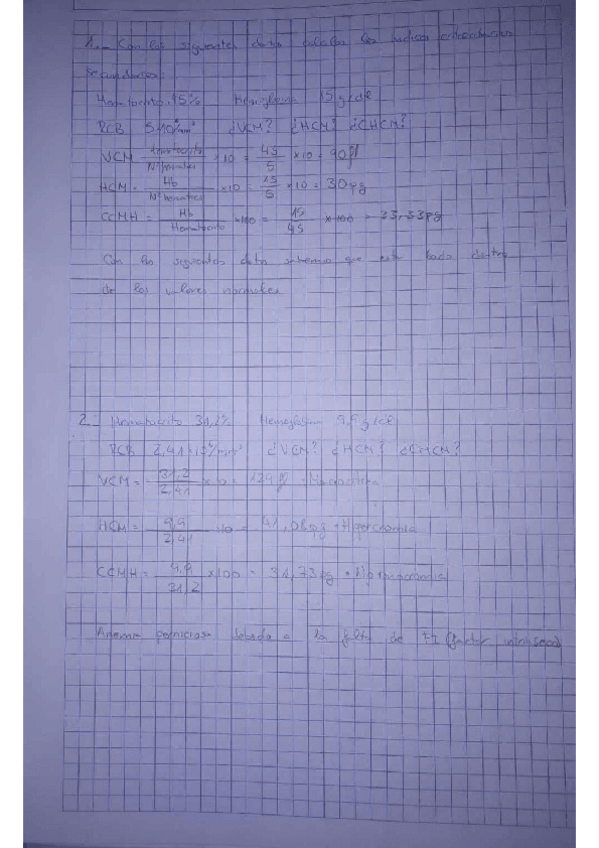 1.- Con los siguientes datos calcular los indices eritrocitarios
secundarios:
Hematocrito 45% Hemoglobina 15 g/dl
RCB 5·10⁶/mm³ ¿VCM? ¿HCM? ¿CHCM?
VCM = Hematocrito / Nº hematies x10 = 45/5 x10 = 90 fl
HCM = Hb / Nº hematies x10 = 15/5 x10 = 30 pg
CCMH = Hb / Hematocrito x100 = 15/45 x100 = 33,33 pg
Con los siguientes datos sabemos que está todo dentro
de los valores normales
2.- Hematocrito 31,2% Hemoglobina 9,9 g/dl
RCB 2,41x10⁶/mm³ ¿VCM? ¿HCM? ¿CHCM?
VCM = 31,2/2,41 x10 = 129 fl
HCM = 9,9/2,41 x10 = 41,0 pg
CCMH = 9,9/31,2 x100 = 31,73 pg
Anemia perniciosa debida a la falta de FI (factor intrinseco)